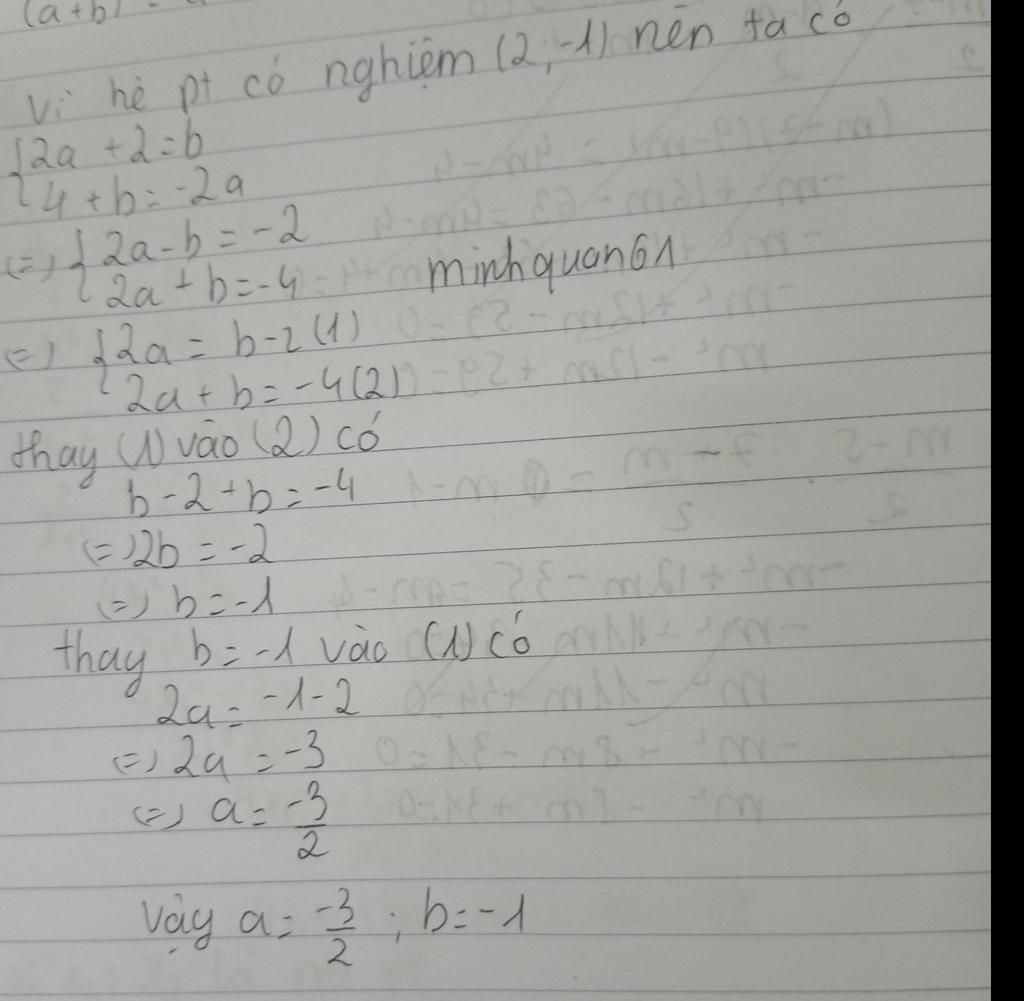 (a+b)
Vì hệ pt có nghiệm (2;-1) nên ta có
{2a+2=b
{4+b=-2a
(=) {2a-b=-2
{2a+b=-4
minhquan61
(=) {2a=b-2(1)
{2a+b=-4(2)
thay (1) vào (2) có
b-2+b=-4
(=) 2b=-2
(=) b=-1
thay b=-1 vào (1) có
2a=-1-2
(=) 2a=-3
(=) a=-3/2
vậy a=-3/2; b=-1